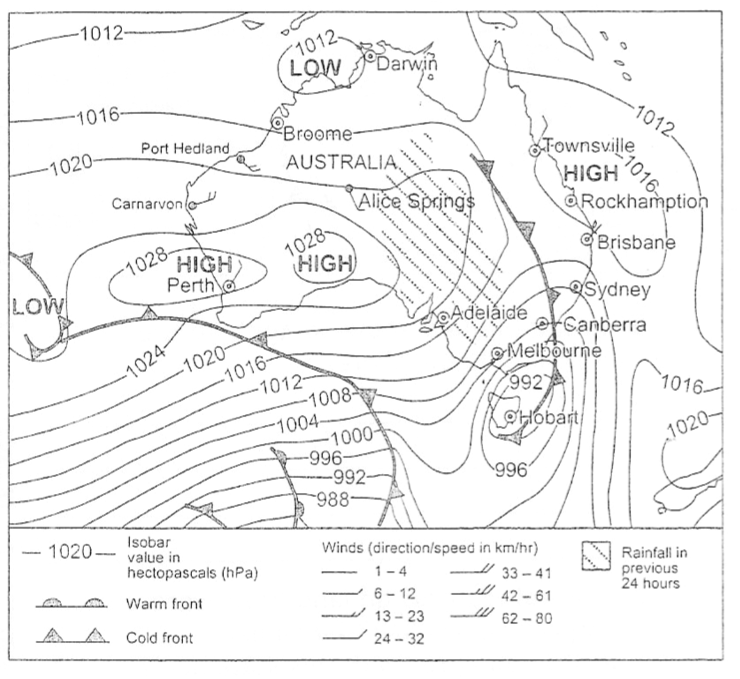 1012
1012
LOW
Darwin
1016
Broome
1012
Port Hedland
AUSTRALIA
Townsville
1020
HIGH
1016
Carnarvon
Alice Springs
Rockhampton
1028
1028
HIGH
HIGH
Brisbane
Perth
LOW
Sydney
Adelaide
Canberra
1024
1020
Melbourne
1016
992
1016
1012
1008
Hobart
1004
1020
1000
996
996
992
988
1020
Isobar
value in
hectopascals (hPa)
Warm front
Cold front
Winds (direction/speed in km/hr)
1 – 4
6 – 12
13 – 23
24 – 32
33 – 41
42 – 61
62 – 80
Rainfall in
previous
24 hours